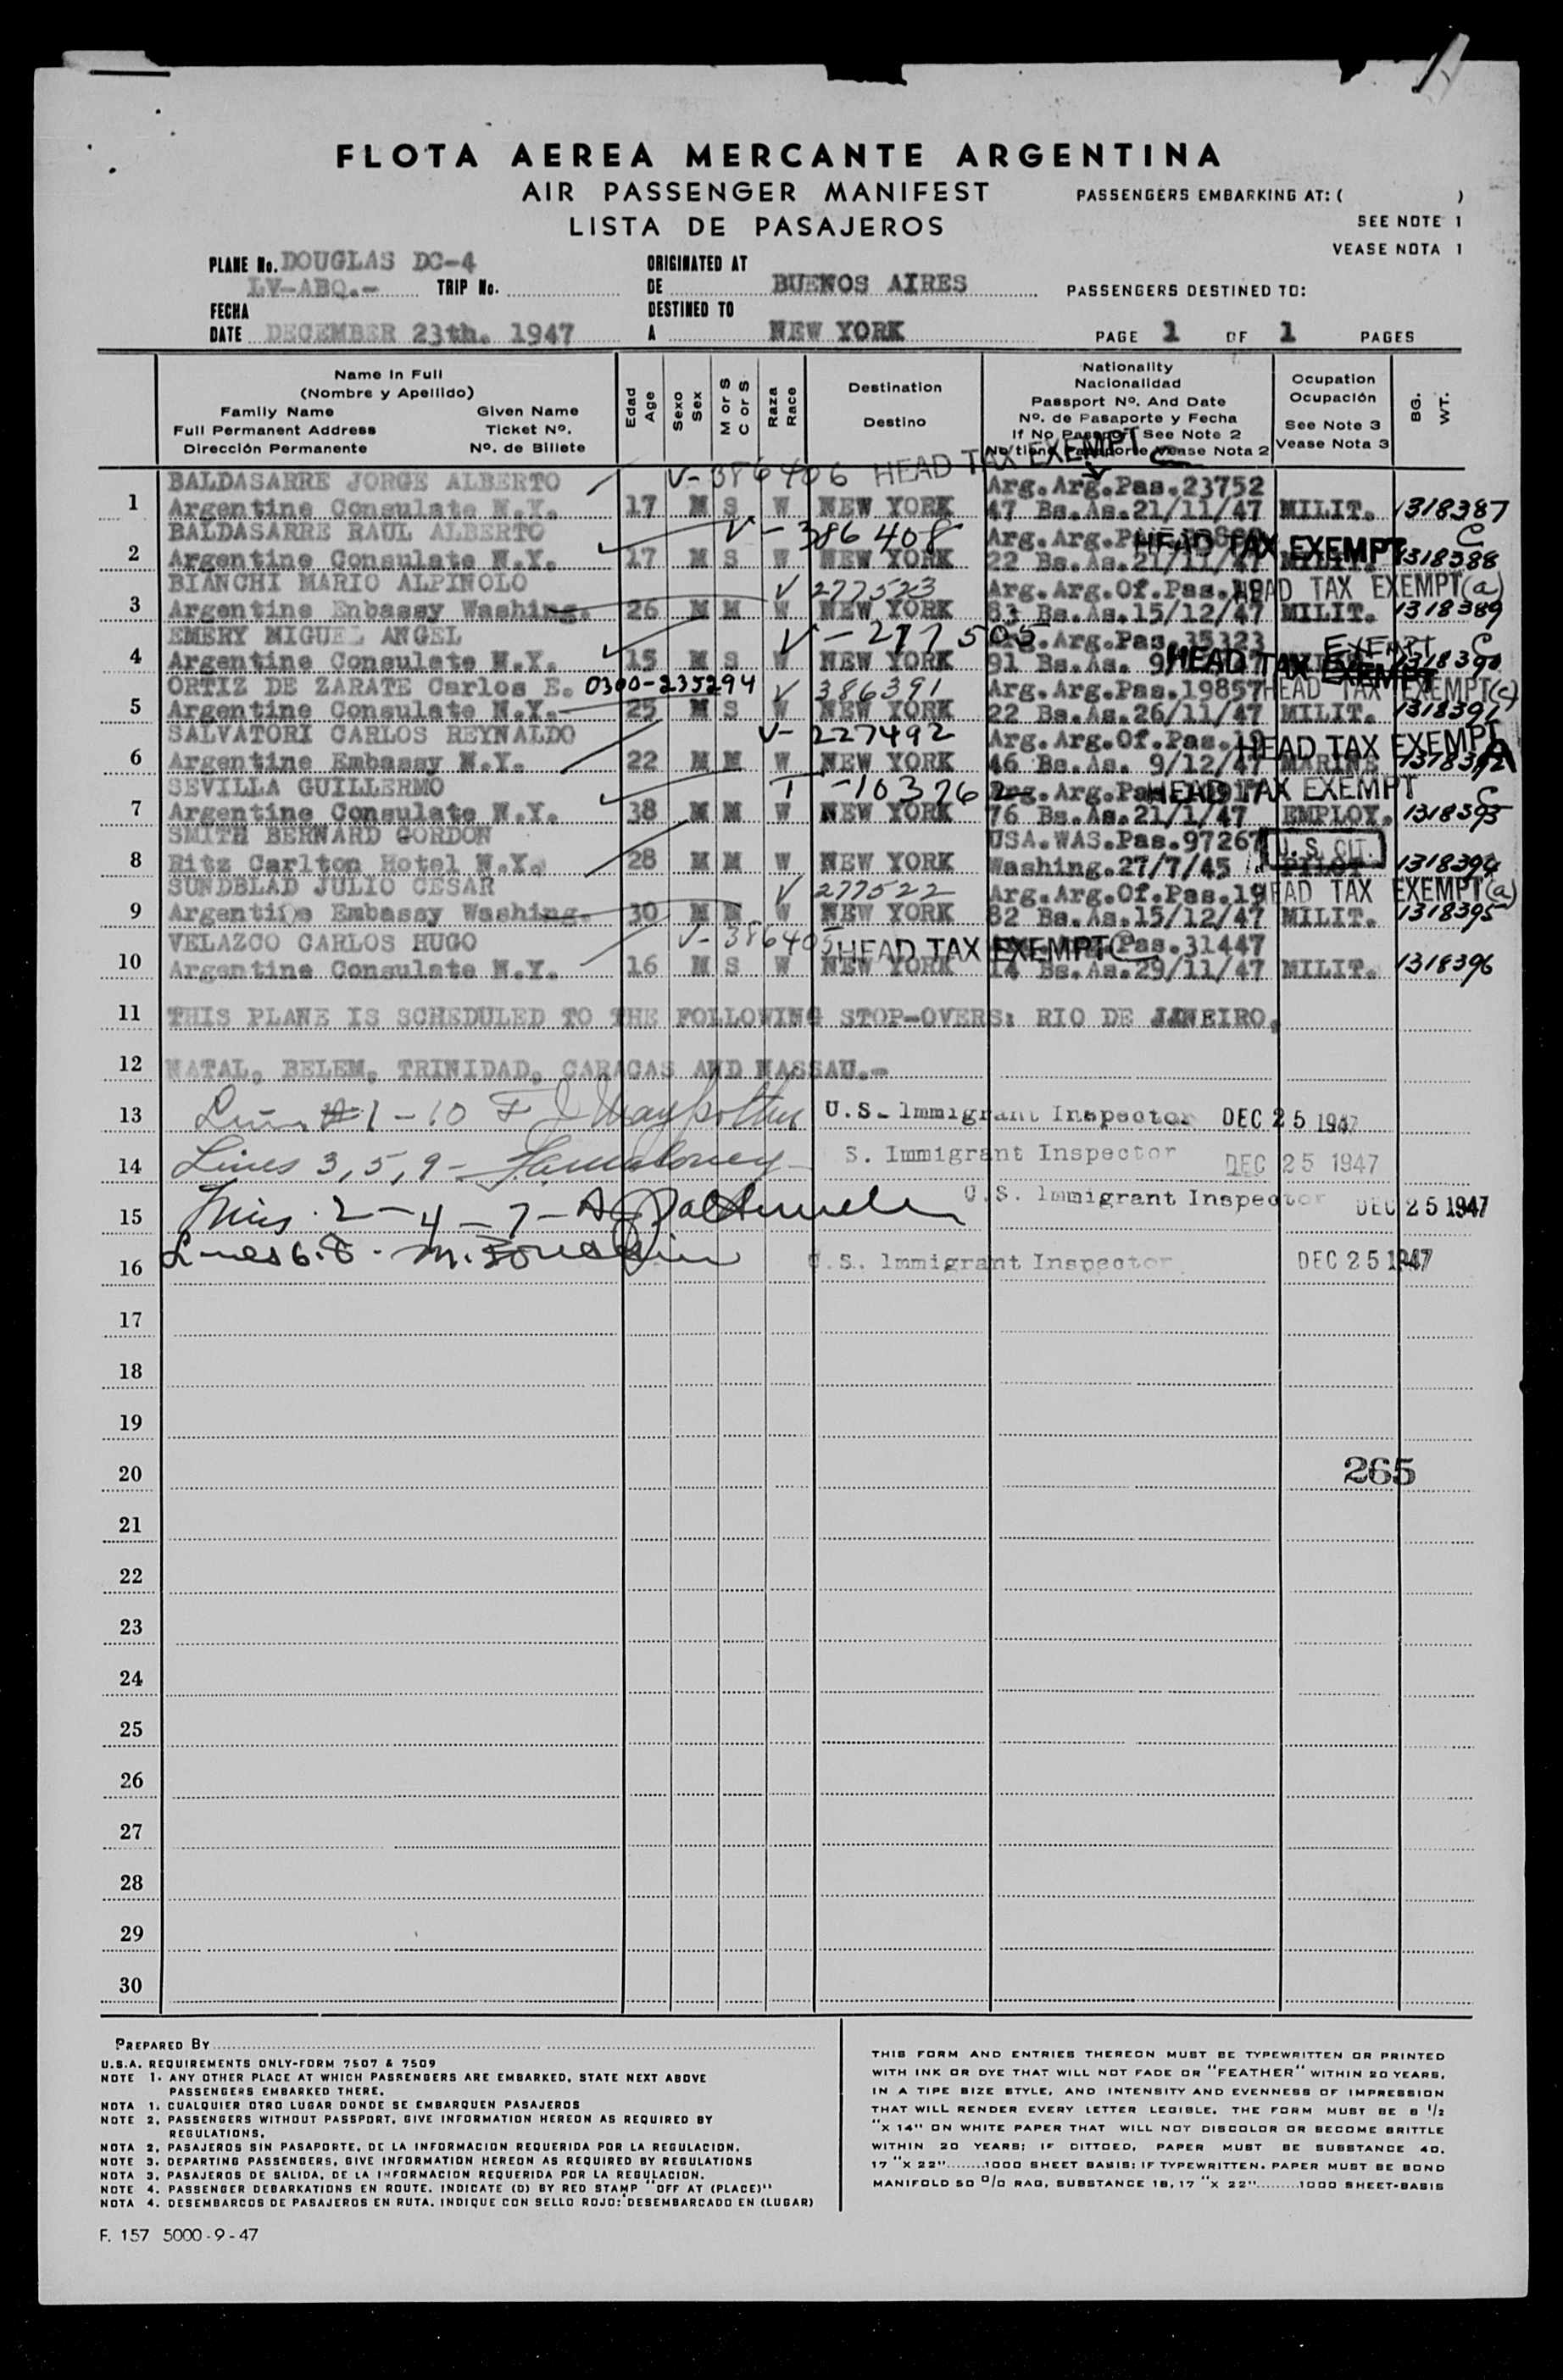 FLOTA AEREA MERCANTE ARGENTINA
AIR PASSENGER MANIFEST
PASSENGERS EMBARKING AT: ( )
LISTA DE PASAJEROS
SEE NOTE 1
VEASE NOTA 1
PLANE No. DOUGLAS DC-4
LV-ABQ.- TRIP No.
ORIGINATED AT
DE BUENOS AIRES
PASSENGERS DESTINED TO:
FECHA
DATE DECEMBER 23th. 1947
DESTINED TO
A NEW YORK
PAGE 1 OF 1 PAGES
Name In Full
(Nombre y Apellido)
Family Name Given Name
Full Permanent Address Ticket Nº.
Dirección Permanente Nº. de Billete
Edad Age
Sexo Sex
M or S C or S
Raza Race
Destination
Destino
Nationality
Nacionalidad
Passport Nº. And Date
Nº. de Pasaporte y Fecha
If No Passport See Note 2
No tiene Pasaporte Vease Nota 2
Ocupation
Ocupación
See Note 3
Vease Nota 3
BG. WT.
BALDASARRE JORGE ALBERTO V-386406 HEAD TAX EXEMPT C Arg.Arg.Pas.23752
1 Argentine Consulate N.Y. 17 M S W NEW YORK 47 Bs.As.21/11/47 MILIT. 1318387
BALDASARRE RAUL ALBERTO V-386408 Arg.Arg. HEAD TAX EXEMPT C
2 Argentine Consulate N.Y. 17 M S W NEW YORK 22 Bs.As.21/11/47 1318388
BIANCHI MARIO ALPINOLO V 277523 Arg.Arg.Of.Pas. HEAD TAX EXEMPT (a)
3 Argentine Enbassy Washing. 26 M M W NEW YORK 83 Bs.As.15/12/47 MILIT. 1318389
EMERY MIGUEL ANGEL V-277505 Arg.Pas.35323 EXEMPT C
4 Argentine Consulate N.Y. 15 M S W NEW YORK 91 Bs.As. HEAD TAX EXEMPT 1318390
ORTIZ DE ZARATE Carlos E. 0300-235294 V 386391 Arg.Arg.Pas.19857 HEAD TAX EXEMPT (c)
5 Argentine Consulate N.Y. 25 M S W NEW YORK 22 Bs.As.26/11/47 MILIT. 1318391
SALVATORI CARLOS REYNALDO V-227492 Arg.Arg.Of.Pas. HEAD TAX EXEMPT A
6 Argentine Embassy N.Y. 22 M M W NEW YORK 46 Bs.As. 9/12/47 MARINE 1318392
SEVILLA GUILLERMO T-103762 Arg. HEAD TAX EXEMPT C
7 Argentine Consulate N.Y. 38 M M W NEW YORK 76 Bs.As.21/1/47 EMPLOY. 1318393
SMITH BERNARD GORDON USA.WAS.Pas.97267 U.S. CIT.
8 Ritz Carlton Hotel N.Y. 28 M M W NEW YORK Washing.27/7/45 PILOT 1318394
SUNDBLAD JULIO CESAR V 277522 Arg.Arg.Of.Pas.19 HEAD TAX EXEMPT (a)
9 Argentine Embassy Washing. 30 M M W NEW YORK 82 Bs.As.15/12/47 MILIT. 1318395
VELAZCO CARLOS HUGO V-386405 HEAD TAX EXEMPT C Pas.31447
10 Argentine Consulate N.Y. 16 M S W NEW YORK 14 Bs.As.29/11/47 MILIT. 1318396
11 THIS PLANE IS SCHEDULED TO THE FOLLOWING STOP-OVERS: RIO DE JANEIRO,
12 NATAL, BELEM, TRINIDAD, CARACAS AND NASSAU.-
13 1-10 U.S. Immigrant Inspector DEC 25 1947
14 Lines 3, 5, 9 - S. Immigrant Inspector DEC 25 1947
15 2-4-7- U.S. Immigrant Inspector DEC 25 1947
16 Lines 6.8. U.S. Immigrant Inspector DEC 25 1947
17
18
19
20 265
21
22
23
24
25
26
27
28
29
30
PREPARED BY
U.S.A. REQUIREMENTS ONLY-FORM 7507 & 7509
NOTE 1. ANY OTHER PLACE AT WHICH PASSENGERS ARE EMBARKED, STATE NEXT ABOVE
PASSENGERS EMBARKED THERE.
NOTA 1. CUALQUIER OTRO LUGAR DONDE SE EMBARQUEN PASAJEROS
NOTE 2. PASSENGERS WITHOUT PASSPORT, GIVE INFORMATION HEREON AS REQUIRED BY
REGULATIONS.
NOTA 2. PASAJEROS SIN PASAPORTE, DE LA INFORMACION REQUERIDA POR LA REGULACION.
NOTE 3. DEPARTING PASSENGERS, GIVE INFORMATION HEREON AS REQUIRED BY REGULATIONS
NOTA 3. PASAJEROS DE SALIDA, DE LA INFORMACION REQUERIDA POR LA REGULACION.
NOTE 4. PASSENGER DEBARKATIONS EN ROUTE. INDICATE (D) BY RED STAMP "OFF AT (PLACE)"
NOTA 4. DESEMBARCOS DE PASAJEROS EN RUTA. INDIQUE CON SELLO ROJO: DESEMBARCADO EN (LUGAR)
THIS FORM AND ENTRIES THEREON MUST BE TYPEWRITTEN OR PRINTED
WITH INK OR DYE THAT WILL NOT FADE OR "FEATHER" WITHIN 20 YEARS,
IN A TIPE SIZE STYLE, AND INTENSITY AND EVENNESS OF IMPRESSION
THAT WILL RENDER EVERY LETTER LEGIBLE. THE FORM MUST BE 8 1/2
"X 14" ON WHITE PAPER THAT WILL NOT DISCOLOR OR BECOME BRITTLE
WITHIN 20 YEARS; IF DITTOED, PAPER MUST BE SUBSTANCE 40,
17 "X 22".......1000 SHEET BASIS; IF TYPEWRITTEN. PAPER MUST BE BOND
MANIFOLD 50 0/0 RAG, SUBSTANCE 18, 17 "X 22".........1000 SHEET-BASIS
F. 157 5000-9-47